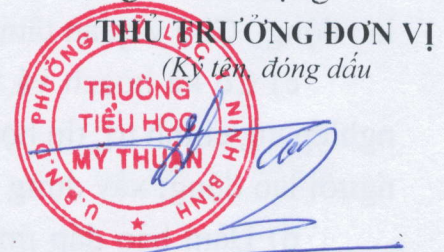 THỦ TRƯỞNG ĐƠN VỊ
(Ký tên, đóng dấu
U.B.N.D PHƯỜNG MỸ LỘC T. NINH BÌNH
TRƯỜNG
TIỂU HỌC
MỸ THUẬN